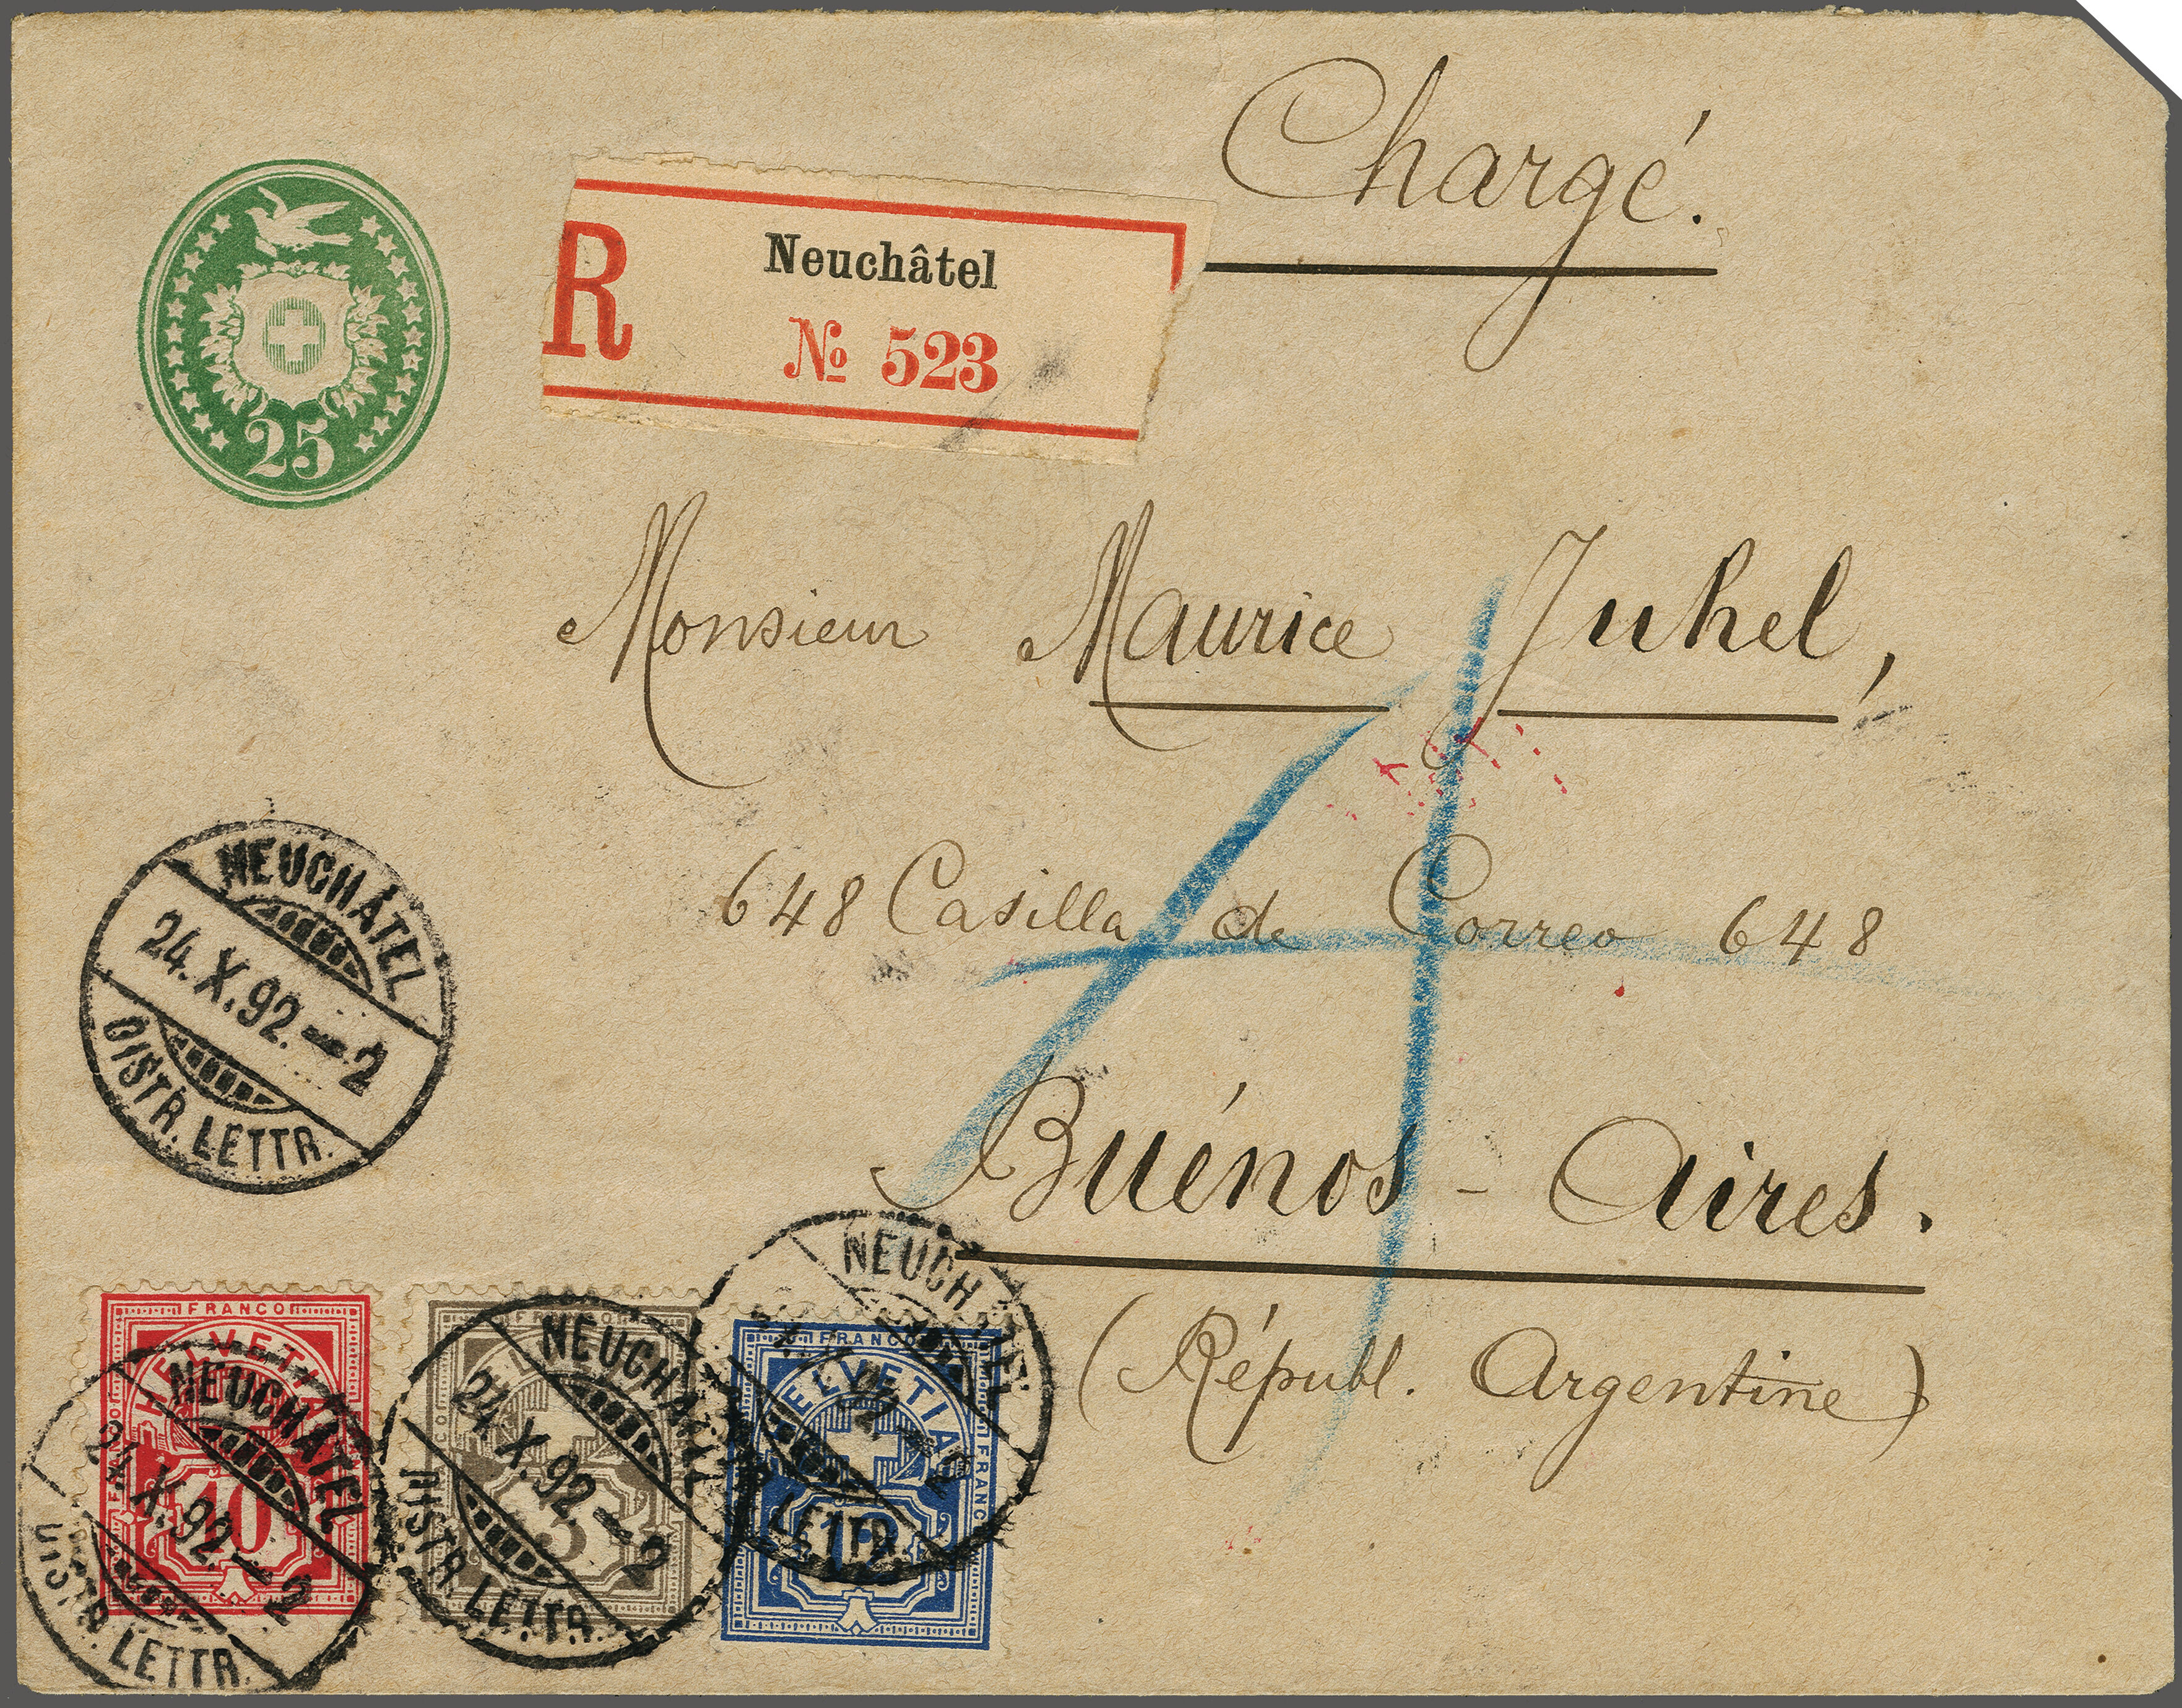 Chargé.
25
R
Neuchâtel
№ 523
Monsieur Maurice Juhel,
648 Casilla de Correo 648
Buénos-Aires.
(Républ. Argentine)
NEUCHÂTEL
24.X.92.-2
DISTR. LETTR.
FRANCO
HELVETIA
10
NEUCHÂTEL
24.X.92.-2
DISTR. LETTR.
FRANCO
3
NEUCHÂTEL
24.X.92.-2
DISTR. LETTR.
FRANCO
HELVETIA
FRANCO
12
NEUCH
92-2
LETTR.